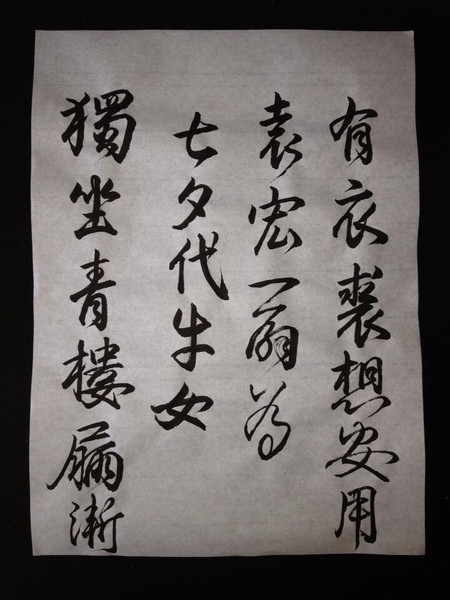 有衣裘想安用
袁宏一扇為
七夕代牛女
獨坐青樓漏漸